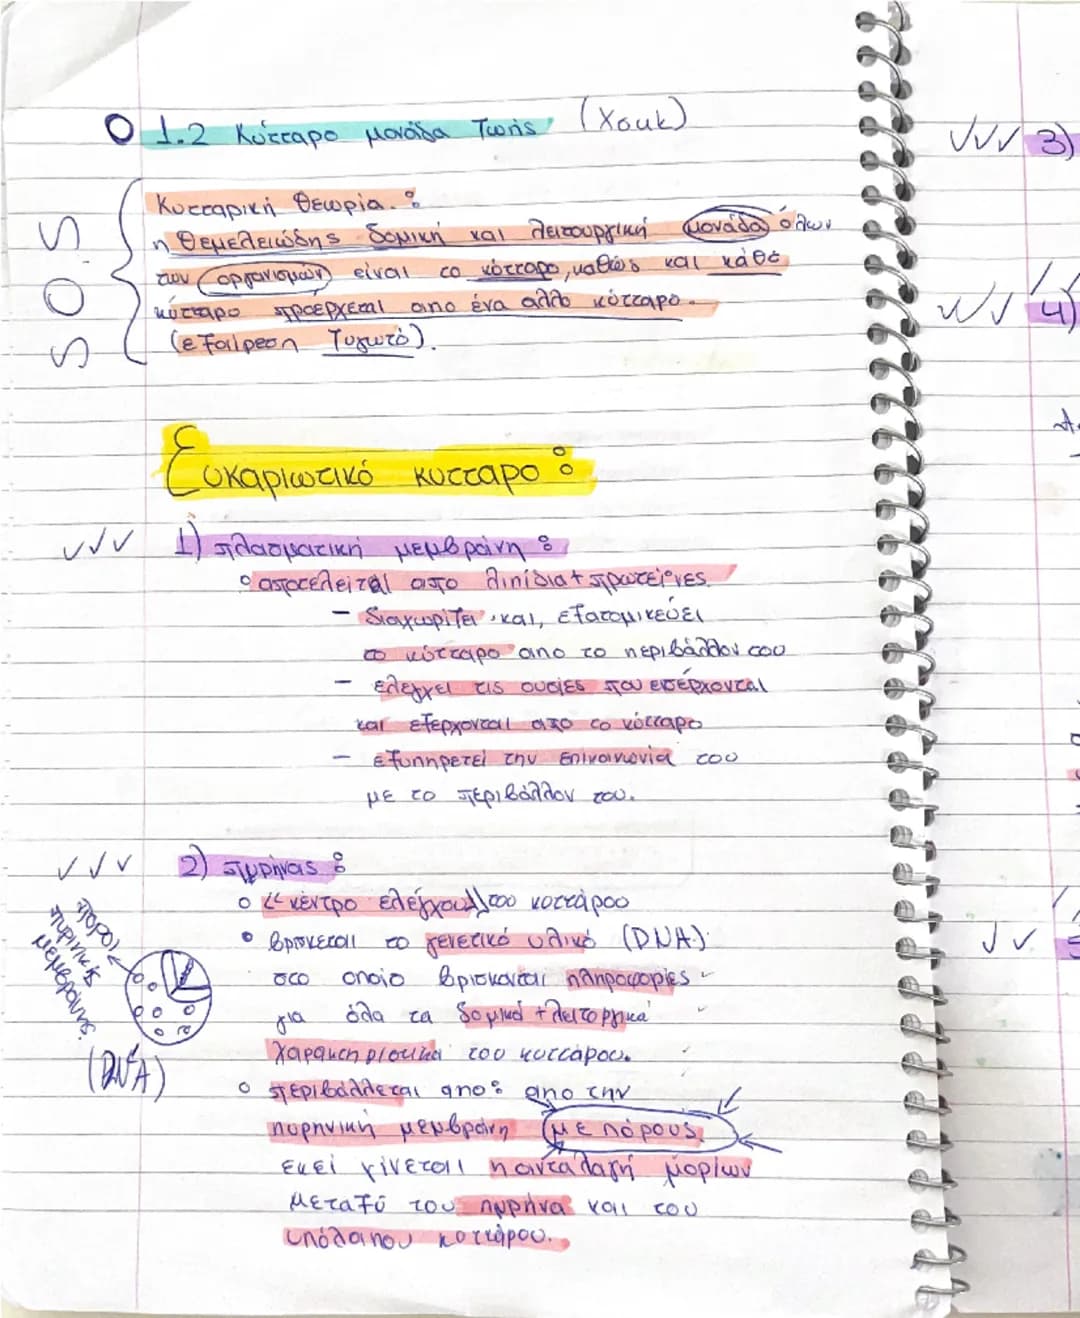 1.2 Κύτταρο μονάδα Ζωής (Χουκ)
SOS
Κυτταρική Θεωρία :
η Θεμελειώδης δομική και λειτουργική μονάδα όλων
των οργανισμών είναι το κύτταρο, καθώς και κάθε
κύτταρο προέρχεται απο ένα αλλο κύτταρο.
(εξαίρεση Ζυγωτό).
Ευκαριωτικό κυτταρο :
1) πλασματική μεμβράνη :
αποτελείται απο λιπίδια + πρωτεΐνες.
- διαχωρίζει και, εξατομικεύει
το κύτταρο απο το περιβάλλον του
- ελέγχει τις ουσίες που εισέρχονται
και εξερχονται απο το κύτταρο
- εξυπηρετεί την επικοινωνία του
με το περιβάλλον του.
2) πυρήνας :
"κέντρο ελέγχου" του κυττάρου
βρισκεται το γενετικό υλικό (DNA)
στο οποίο βρισκονται πληροφορίες
για όλα τα δομικά + λειτοργικά
χαρακτηριστικά του κυττάρου.
περιβάλλεται απο: απο την
πυρηνική μεμβράνη (με πόρους)
εκεί γίνεται η ανταλαγή μορίων
μεταξύ του πυρήνα και του
υπόλοιπου κυττάρου.
πόροι
πυρινικής
μεμβράνης.
(DNA)
3)
4)
5